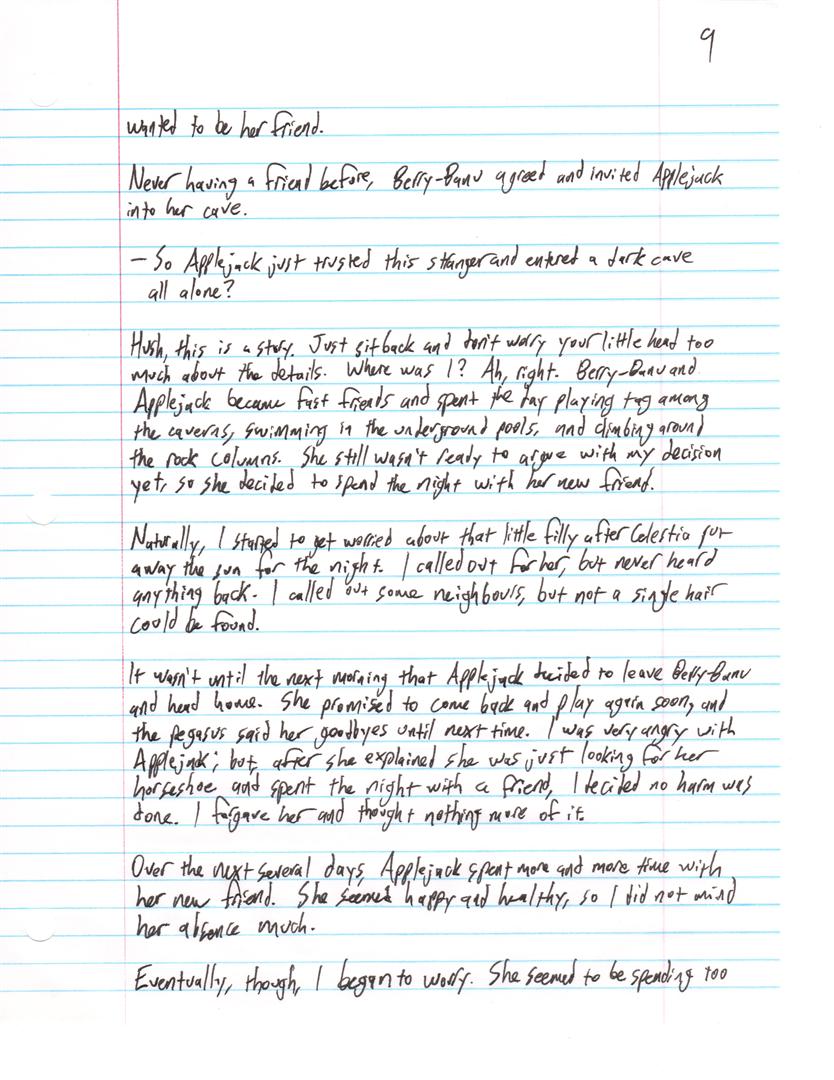 9
wanted to be her friend.
Never having a friend before, Berry-Banu agreed and invited Applejack
into her cave.
- So Applejack just trusted this stranger and entered a dark cave
all alone?
Hush, this is a story. Just sit back and don't worry your little head too
much about the details. Where was I? Ah, right. Berry-Banu and
Applejack became fast friends and spent the day playing tag among
the caverns, swimming in the underground pools, and climbing around
the rock columns. She still wasn't ready to argue with my decision
yet, so she decided to spend the night with her new friend.
Naturally, I started to get worried about that little filly after Celestia put
away the sun for the night. I called out for her, but never heard
anything back. I called out some neighbours, but not a single hair
could be found.
It wasn't until the next morning that Applejack decided to leave Berry-Banu
and head home. She promised to come back and play again soon, and
the pegasus said her goodbyes until next time. I was very angry with
Applejack; but, after she explained she was just looking for her
horseshoe and spent the night with a friend, I decided no harm was
done. I forgave her and thought nothing more of it.
Over the next several days, Applejack spent more and more time with
her new friend. She seemed happy and healthy, so I did not mind
her absence much.
Eventually, though, I began to worry. She seemed to be spending too